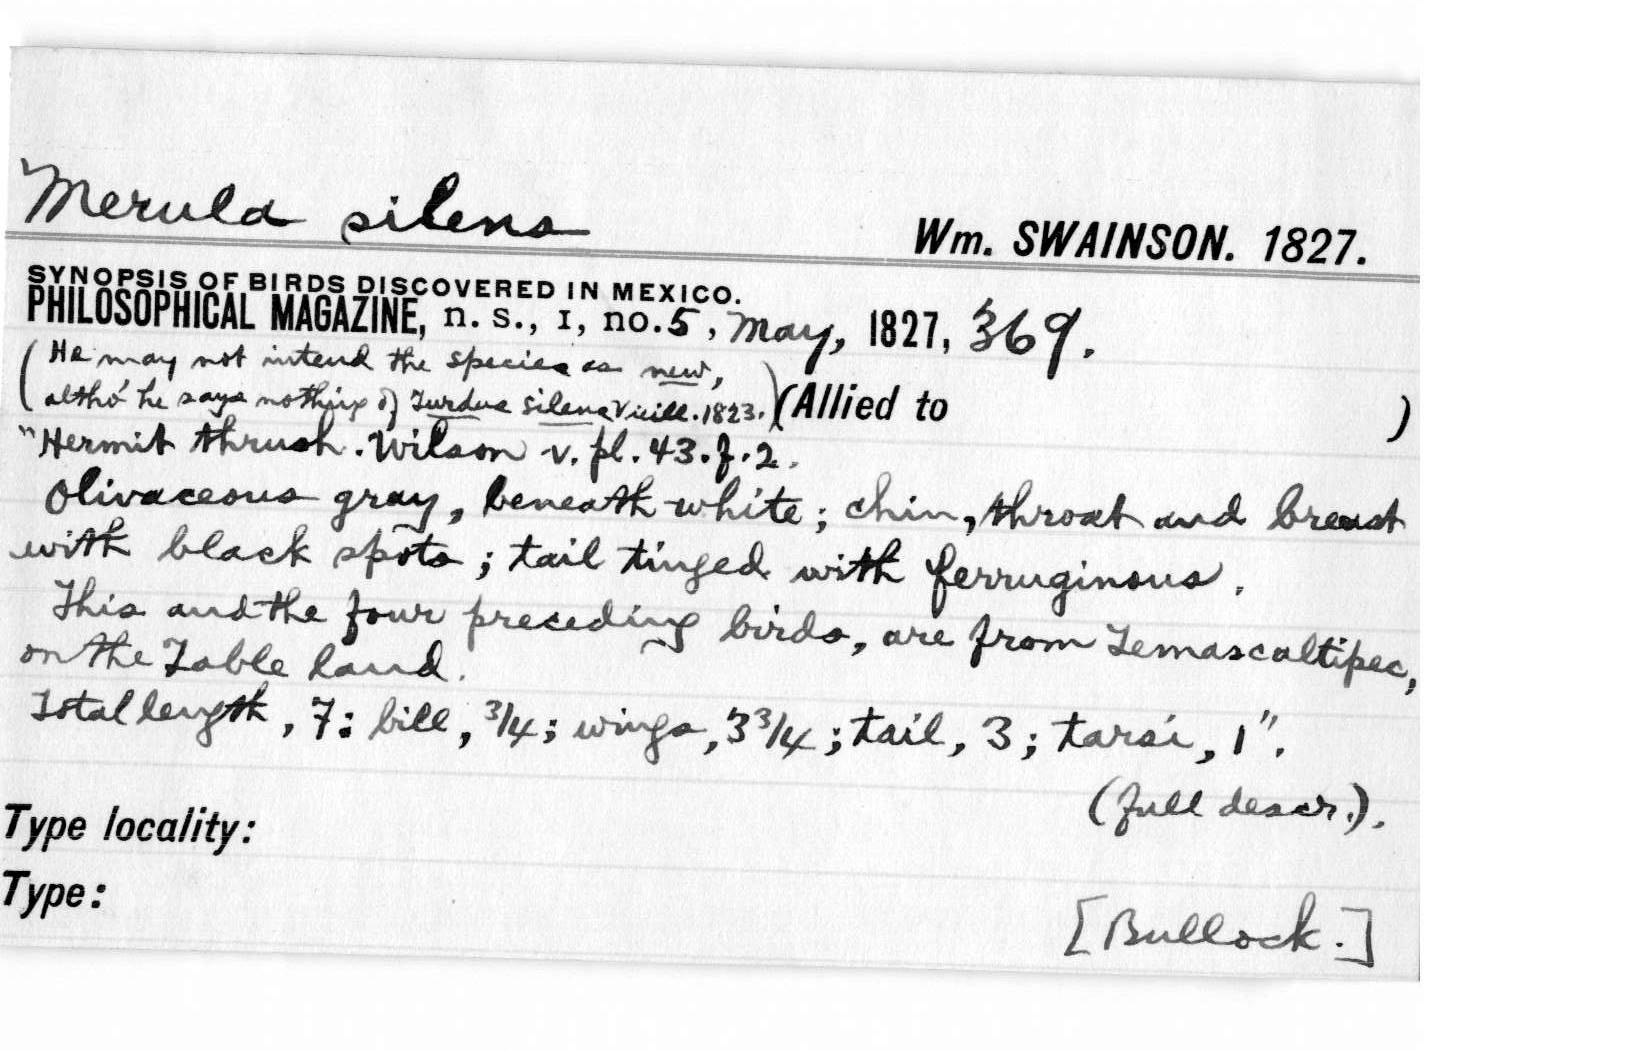 Merula silens
Wm. SWAINSON. 1827.
SYNOPSIS OF BIRDS DISCOVERED IN MEXICO.
PHILOSOPHICAL MAGAZINE, n. s., I, no. 5, May, 1827, 369.
(He may not intend the species as new,
altho' he says nothing of Turdus silens Vieill. 1823.) (Allied to )
"Hermit thrush. Wilson v. pl. 43. f. 2.
Olivaceous gray, beneath white; chin, throat and breast
with black spots; tail tinged with ferruginous.
This and the four preceding birds, are from Temascaltipec,
on the Table land.
Total length, 7: bill, 3/4; wings, 3 3/4; tail, 3; tarsi, 1".
(full descr.).
Type locality:
Type:
[Bullock.]